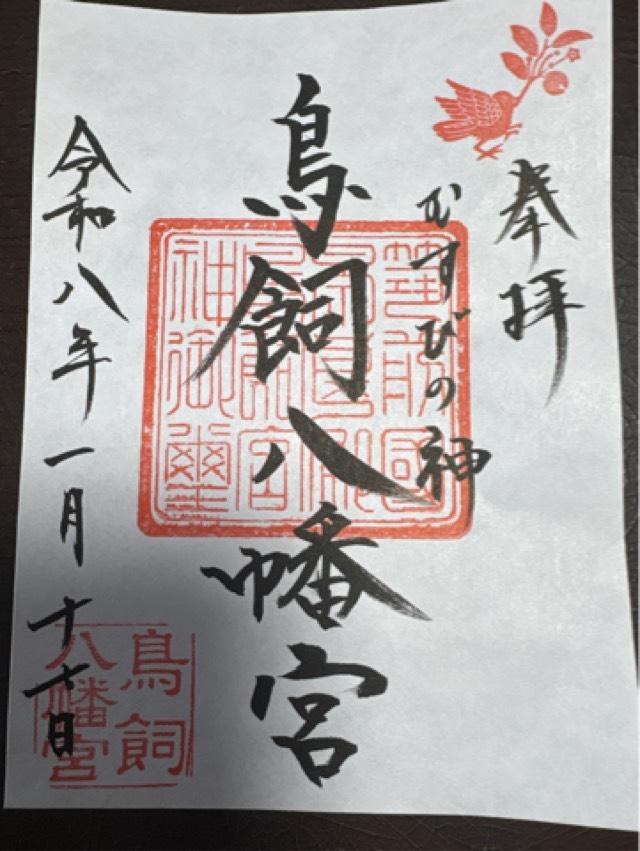 奉拝
むすびの神
鳥飼八幡宮
令和八年一月十七日
鳥飼
八幡宮